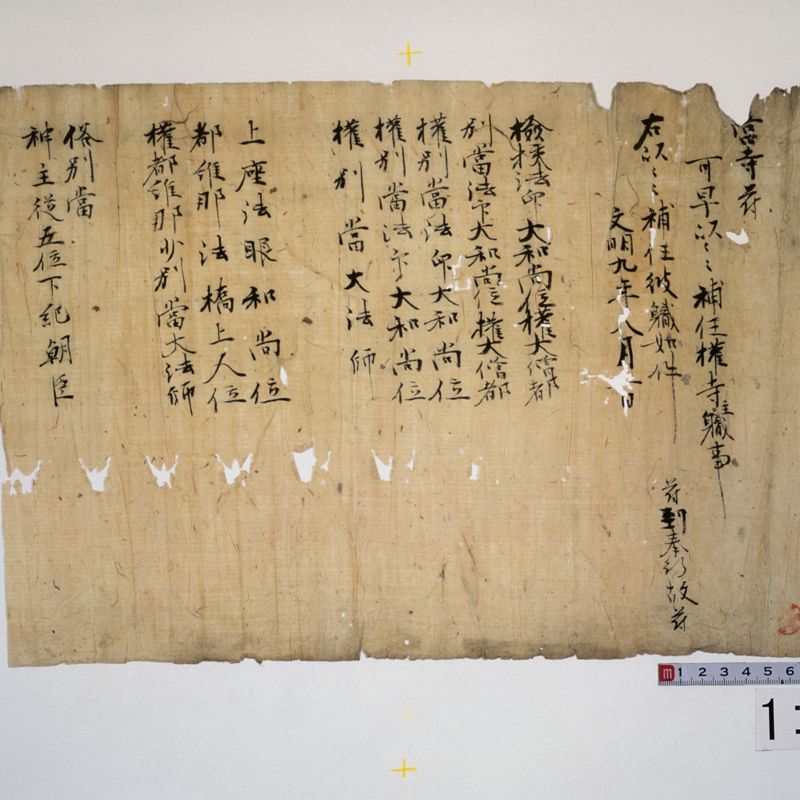 宮寺符
可早以〻補任權寺主職事
右以〻補任彼職如件
符到奉行故符
文明九年八月 日
檢校法印大和尚位權大僧都
別當法印大和尚位權大僧都
權別當法印大和尚位
權別當法印大和尚位
權別當大法師
上座法眼和尚位
都維那法橋上人位
權都維那少別當大法師
俗別當
神主從五位下紀朝臣
m 1 2 3 4 5 6
1